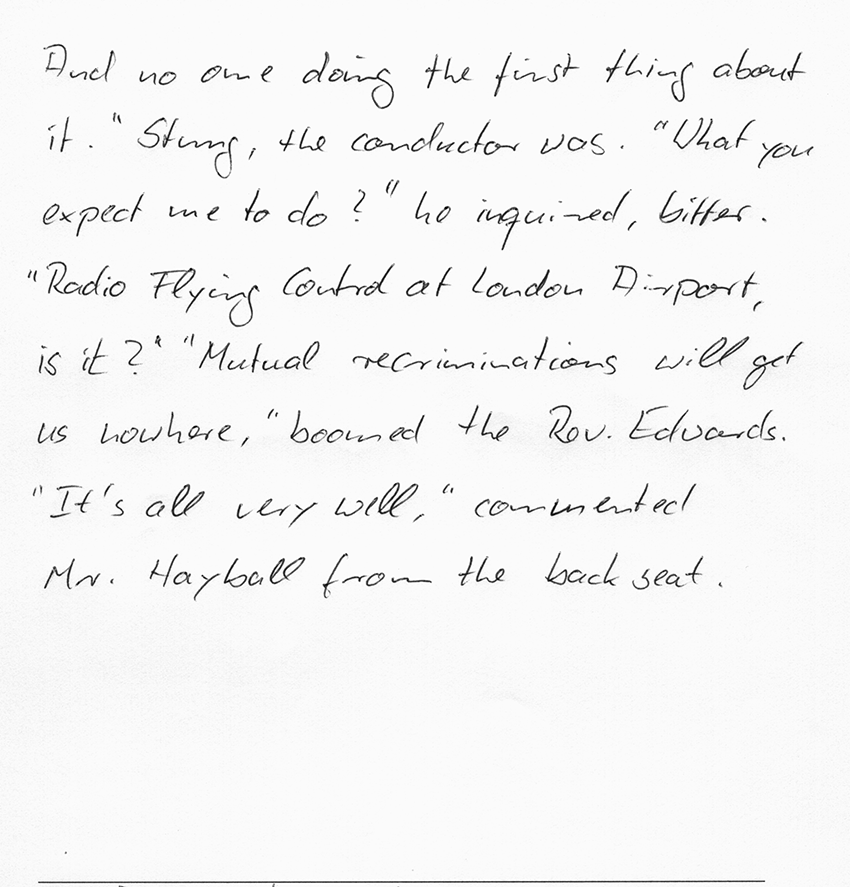 And no one doing the first thing about
it." Stung, the conductor was. "What you
expect me to do?" he inquired, bitter.
"Radio Flying Control at London Airport,
is it?" "Mutual recriminations will get
us nowhere," boomed the Rev. Edwards.
"It's all very well," commented
Mr. Hayball from the back seat.